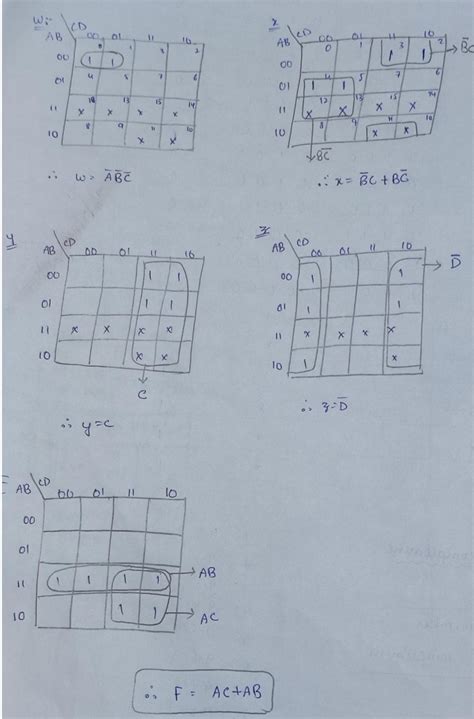 w:-
AB \ CD 00 01 11 10
00 1 1 0 1 3 2
01 4 5 7 6
11 x 12 x 13 x 15 x 14
10 8 9 x 11 x 10
∴ w = A̅B̅C̅
x
AB \ CD 00 01 11 10
00 0 1 1 3 1 2 → B̅C
01 1 4 1 5 7 6
11 x 12 x 13 x 15 x 14
10 8 9 x 11 x 10
BC̅
∴ x = B̅C + BC̅
y
AB \ CD 00 01 11 10
00 1 1
01 1 1
11 x x x x
10 x x
C
∴ y = C
z
AB \ CD 00 01 11 10
00 1 1 → D̅
01 1 1
11 x x x x
10 1 x
∴ z = D̅
AB \ CD 00 01 11 10
00
01
11 1 1 1 1 → AB
10 1 1 → AC
∴ F = AC+AB